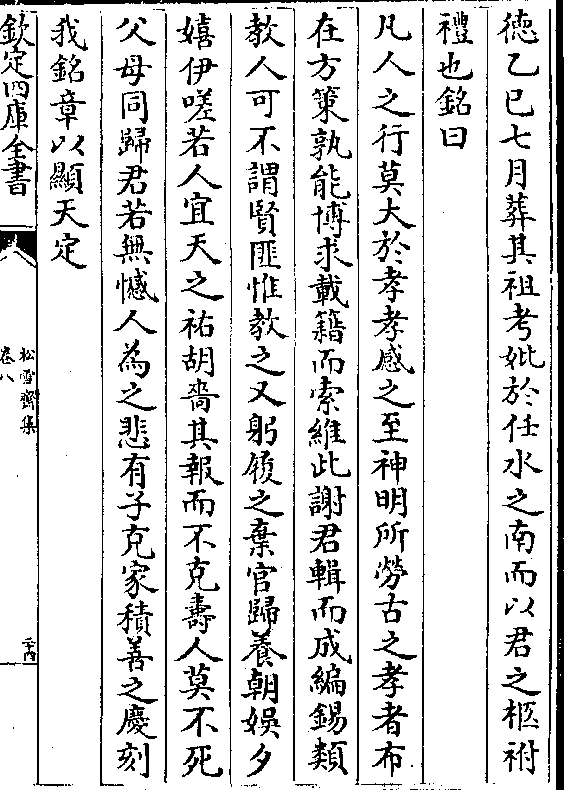 德乙巳七月葬其祖考妣於任水之南而以君之柩祔
禮也銘曰
凡人之行莫大於孝孝感之至神明所勞古之孝者布
在方策孰能博求載籍而索維此謝君輯而成編錫類
教人可不謂賢匪惟教之又躬履之棄官歸養朝娛夕
嬉伊嗟若人宜天之祐胡嗇其報而不克壽人莫不死
父母同歸君若無憾人為之悲有子克家積善之慶刻
我銘章以顯天定
欽定四庫全書
松雪齋集
卷八
二十四